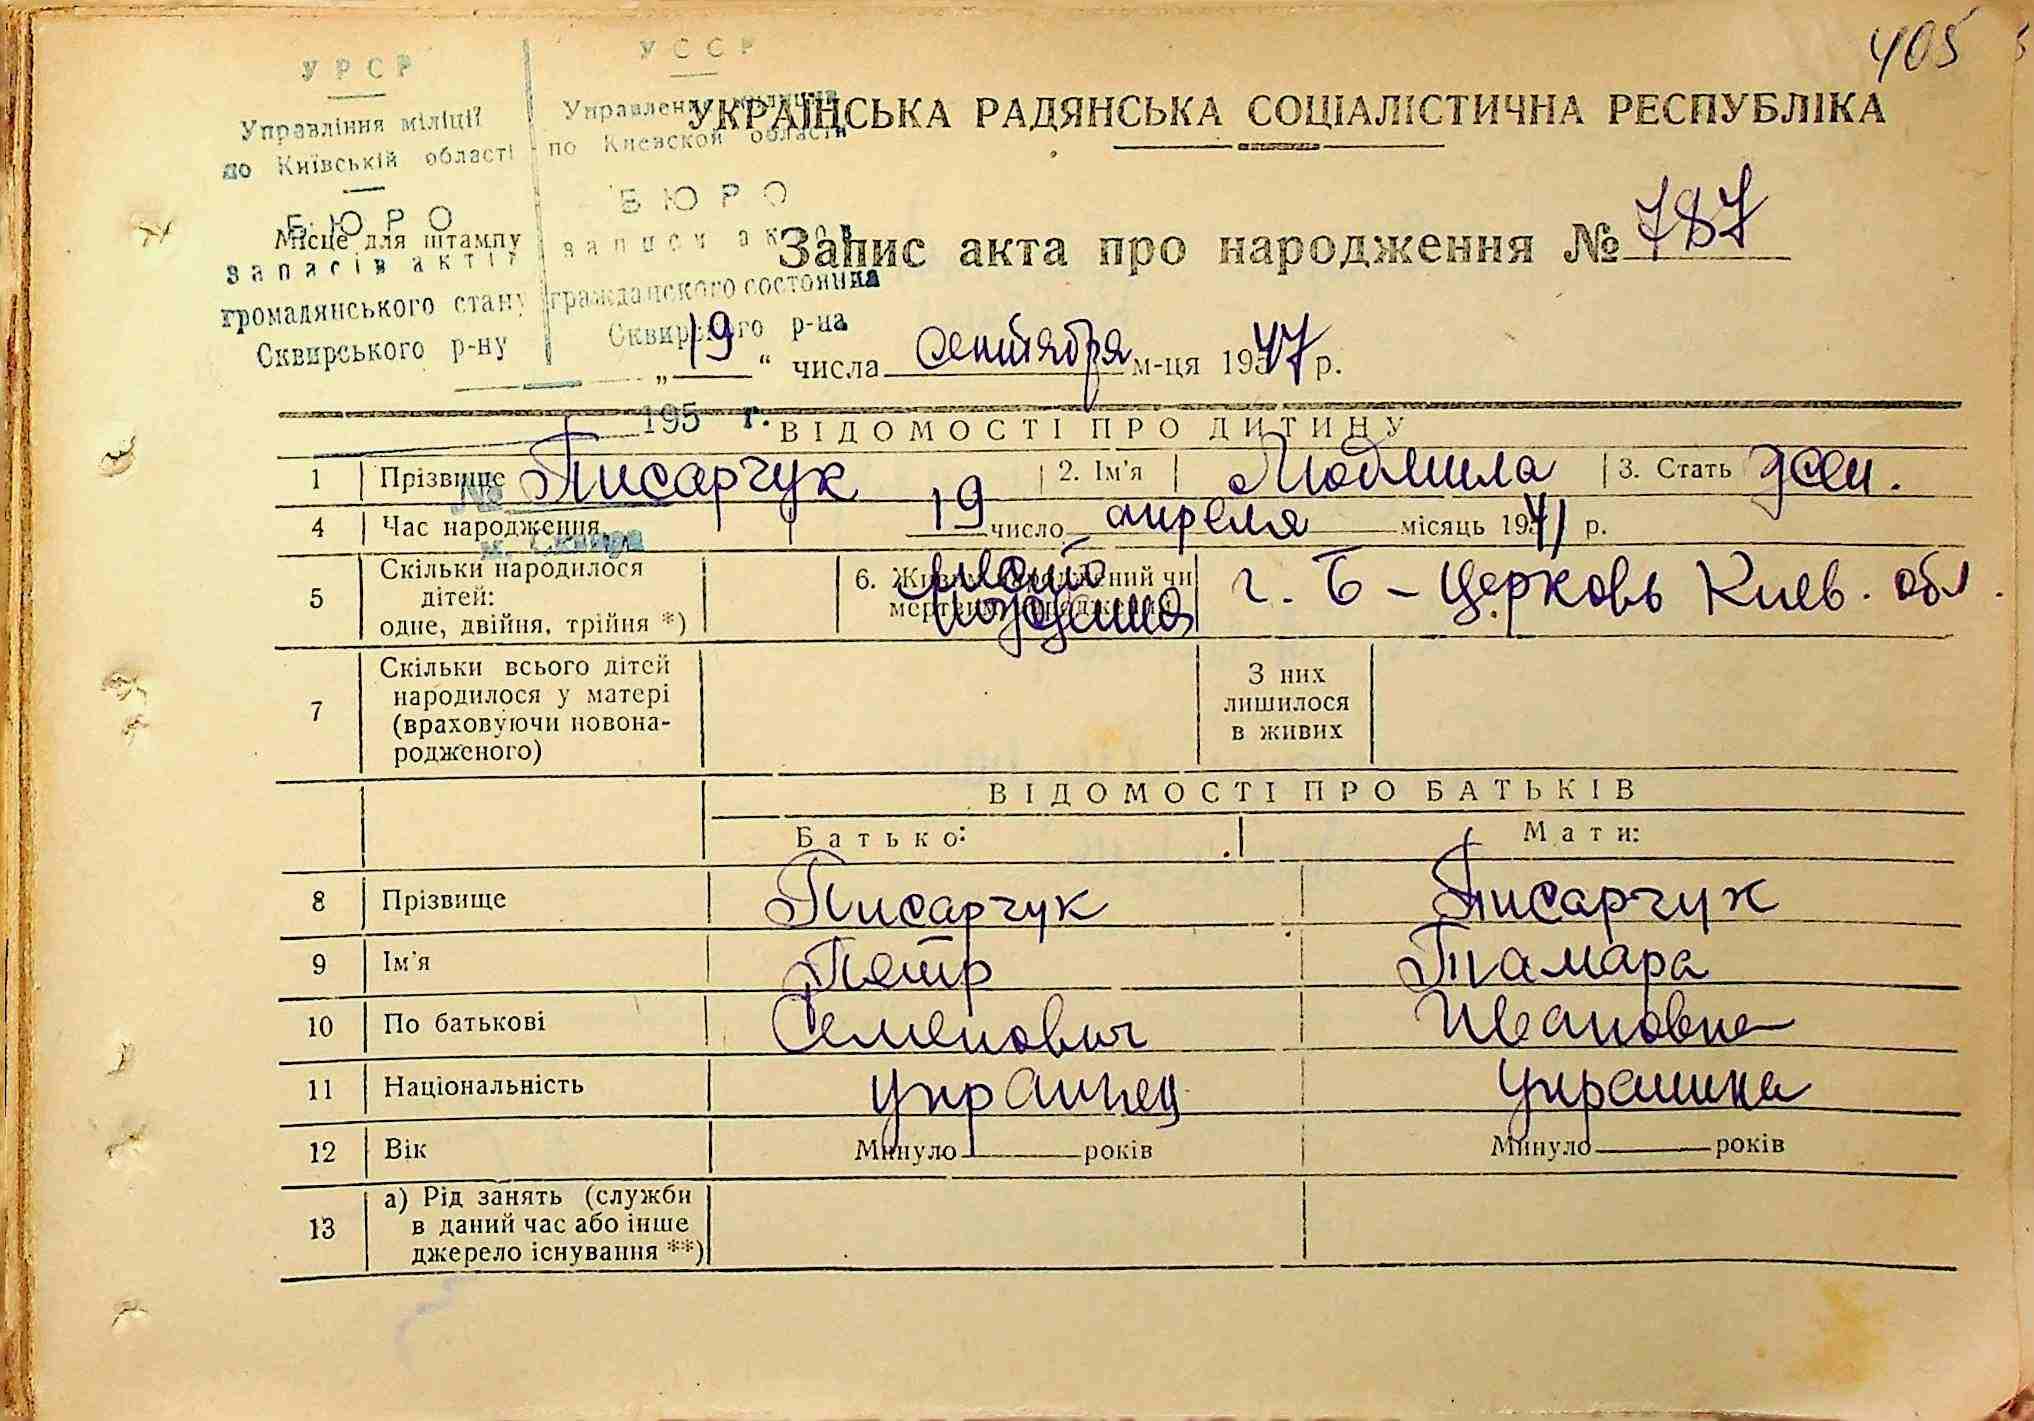 405
УРСР
Управління міліції
по Київській області
БЮРО
записів актів
громадянського стану
Сквирського р-ну
УССР
Управление милиции
по Киевской области
БЮРО
записи актов
гражданского состояния
Сквирского р-на
195 г.
№
м. Сквира
УКРАЇНСЬКА РАДЯНСЬКА СОЦІАЛІСТИЧНА РЕСПУБЛІКА
Місце для штампу
Запис акта про народження № 787
„19“ числа сентября м-ця 1947 р.
ВІДОМОСТІ ПРО ДИТИНУ
1 Прізвище Писарчук 2. Ім'я Людмила 3. Стать жен.
4 Час народження 19 число апреля місяць 1941 р.
5 Скільки народилося дітей: одне, двійня, трійня *) 6. Живим народжений чи мертвим народжений место рождения г. Б-Церковь Киев. обл.
7 Скільки всього дітей народилося у матері (враховуючи новонародженого) З них лишилося в живих
ВІДОМОСТІ ПРО БАТЬКІВ
Батько: Мати:
8 Прізвище Писарчук Писарчук
9 Ім'я Петр Тамара
10 По батькові Семенович Ивановна
11 Національність украинец украинка
12 Вік Минуло років Минуло років
13 а) Рід занять (служби в даний час або інше джерело існування **)